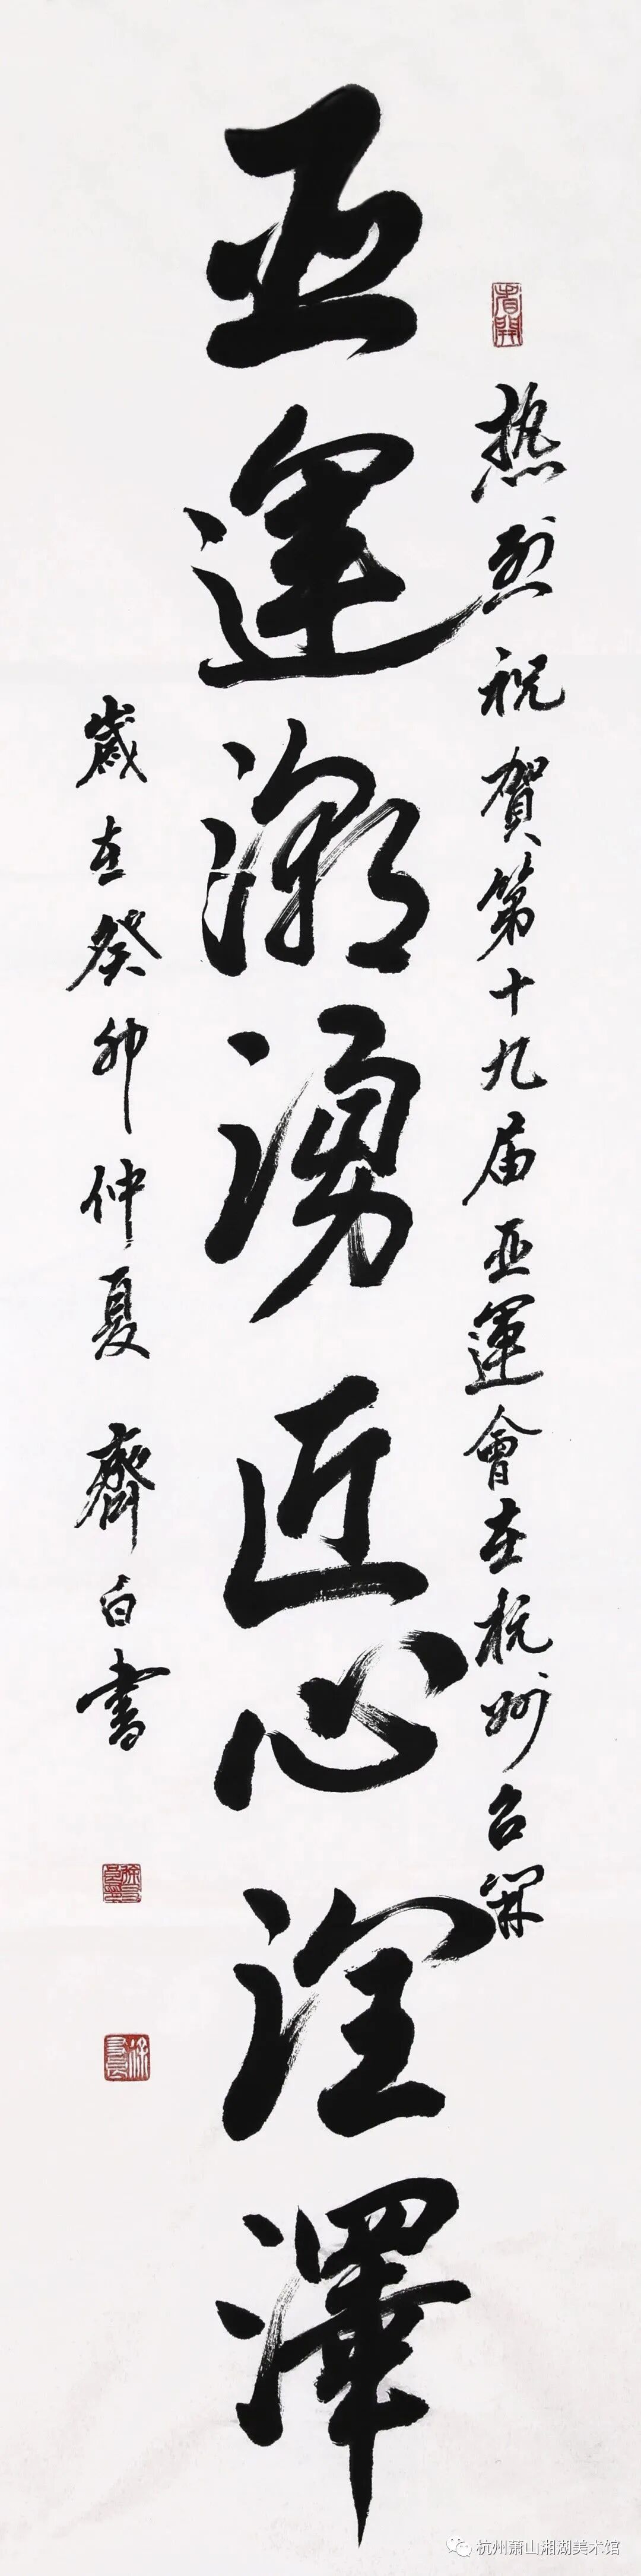 热烈祝賀第十九届亚運會在杭州召開
亚運潮湧匠心
歲在癸卯仲夏 齊白書
杭州萧山湘湖美术馆